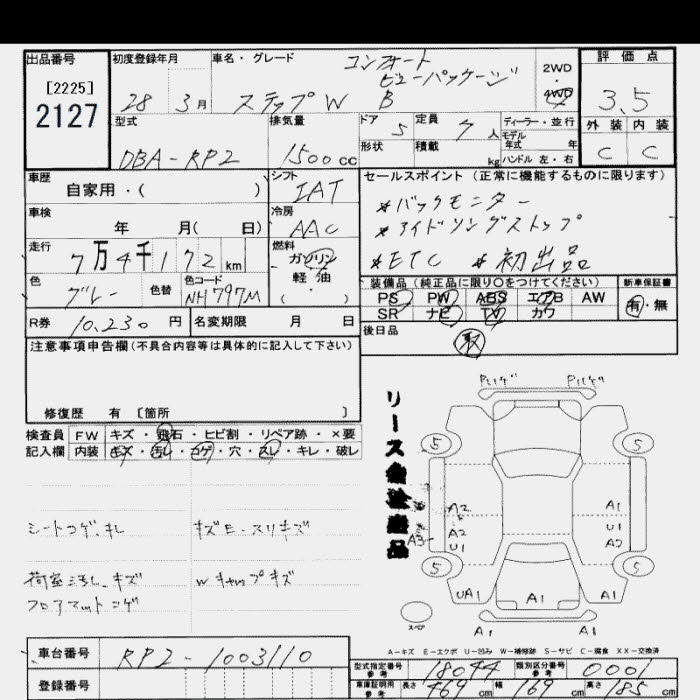 出品番号
[2225]
2127
初度登録年月
28 3月
車名・グレード
コンフォート
ビューパッケージ
ステップW B
2WD
4WD
評価点
3.5
外装 内装
C C
型式
DBA-RP2
排気量
1500cc
ドア 5
定員 7人
形状
積載 kg
ディーラー・並行
モデル
年式 年
ハンドル 左・右
車歴
自家用・( )
シフト
IAT
セールスポイント (正常に機能するものに限ります)
*バックモニター
*アイドリングストップ
*ETC *初出品
車検
年 月( 日)
冷房
AAC
走行
7万4千172km
燃料
ガソリン
軽・油
・( )
色
グレー
色替
色コード
NH797M
装備品(純正品に限り○をつけてください)
PS PW ABS エアB AW
SR ナビ TV カワ
新車保証書
有・無
R券 10,230円
名変期限 月 日
後日品
取
注意事項申告欄(不具合内容等は具体的に記入して下さい)
修復歴 有 [箇所 ]
検査員
記入欄
FW キズ・飛石・ヒビ割・リペア跡・×要
内装 キズ・汚レ・コゲ・穴・スレ・キレ・破レ
シートコゲ、キレ
キズE・スリキズ
荷室ヨゴレ、キズ
Wキャップキズ
フロアマットコゲ
リース
品
P1ハゲ P1ハゲ
5 5
A2 A1
A3 A2 U1
U1 A2
5 5
UA1 A1 A1
スペア
A1 A1
A-キズ E-エクボ U-凹み W-補修跡 S-サビ C-腐食 XX-交換済
車台番号
RP2-1003110
登録番号
型式指定番号
参考
18044
類別区分番号
参考
0001
車庫証明用
参考
長さ 469cm 幅 169cm 高さ 185cm